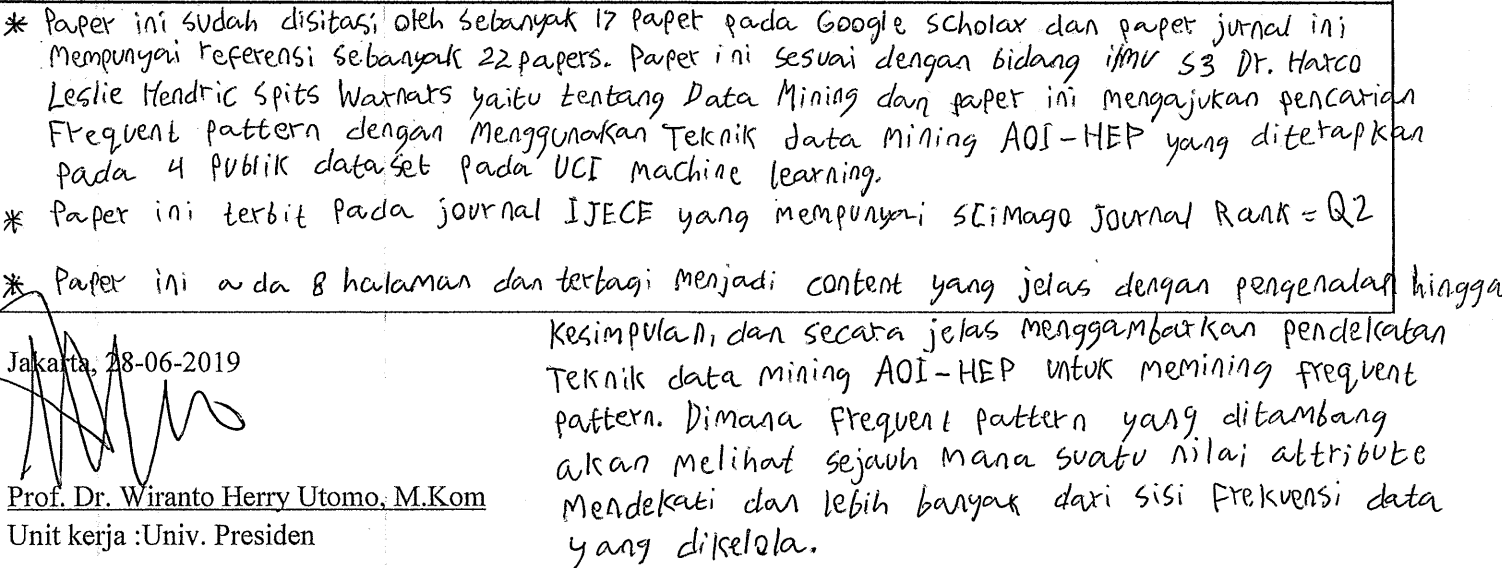 * Paper ini sudah disitasi oleh sebanyak 17 paper pada Google scholar dan paper jurnal ini
mempunyai referensi sebanyak 22 papers. Paper ini sesuai dengan bidang ilmu S3 Dr. Harco
Leslie Hendric Spits Warnars yaitu tentang Data Mining dan paper ini mengajukan pencarian
Frequent pattern dengan menggunakan Teknik data mining AOI-HEP yang diterapkan
pada 4 publik dataset pada UCI machine learning.
* Paper ini terbit pada journal IJECE yang mempunyai SCimago Journal Rank = Q2
* Paper ini ada 8 halaman dan terbagi menjadi content yang jelas dengan pengenalan hingga
kesimpulan, dan secara jelas menggambarkan pendekatan
Teknik data mining AOI-HEP untuk memining frequent
pattern. Dimana Frequent pattern yang ditambang
akan melihat sejauh mana suatu nilai attribute
mendekati dan lebih banyak dari sisi Frekuensi data
yang dikelola.
Jakarta, 28-06-2019
Prof. Dr. Wiranto Herry Utomo, M.Kom
Unit kerja :Univ. Presiden